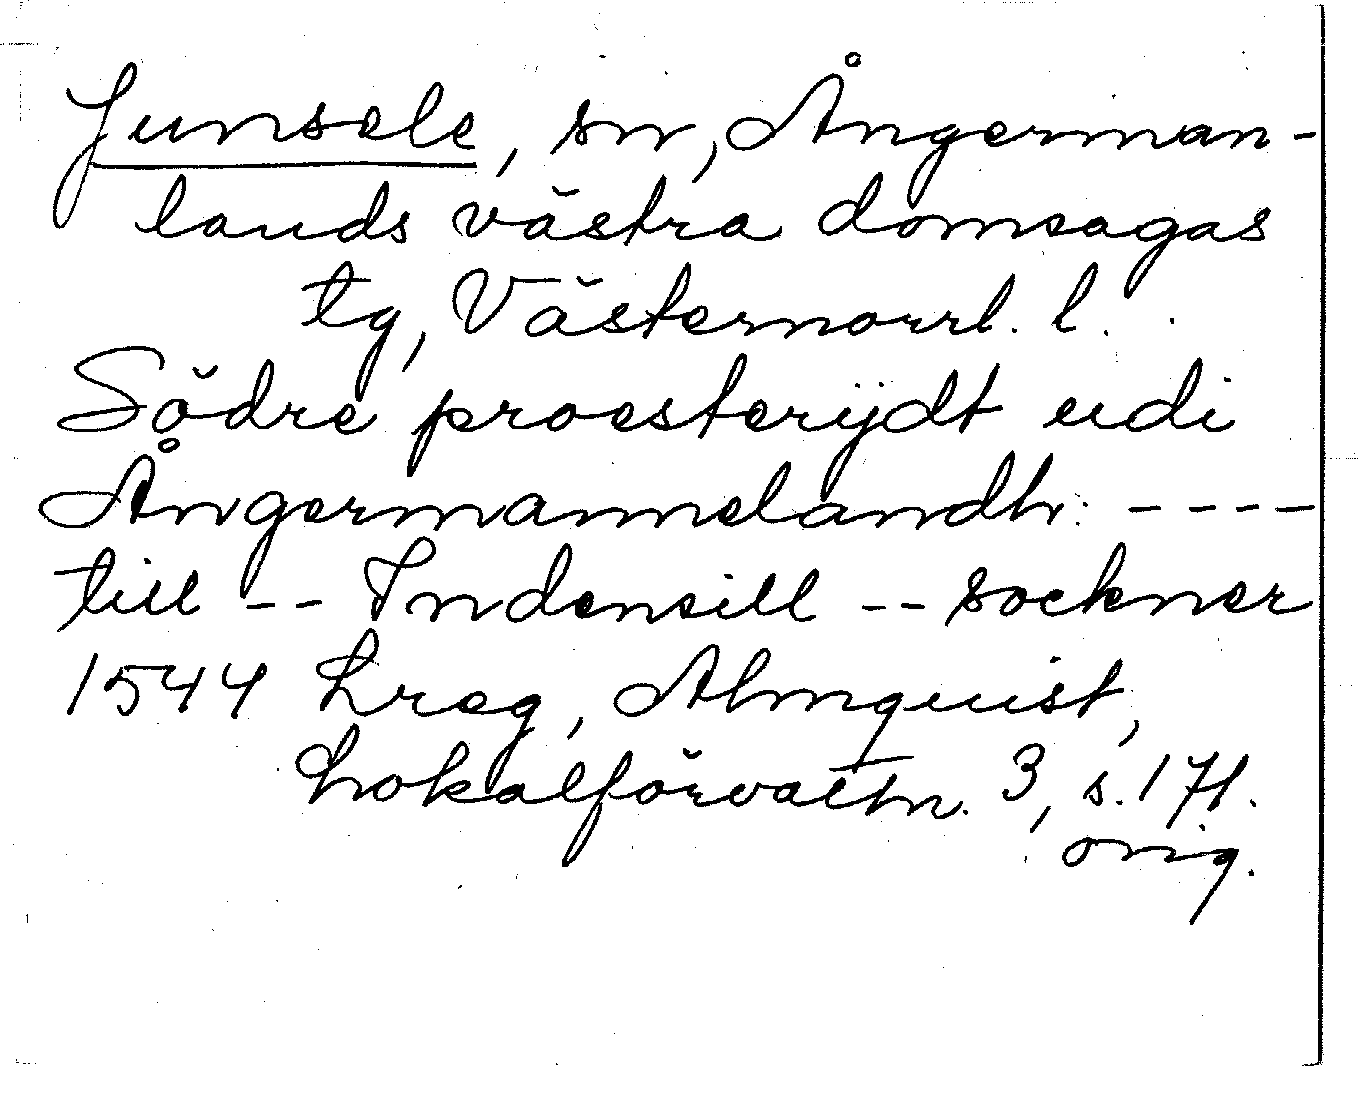 Junsele, sn, Ångerman-
lands västra domsagas
tg, Västernorrl. l.
Södre proesterijdt udi
Ångermannelandh: ----
till -- Indensill -- sockner
1544 Lreg, Almquist,
Lokalförvaltn. 3, s. 171.
orig.